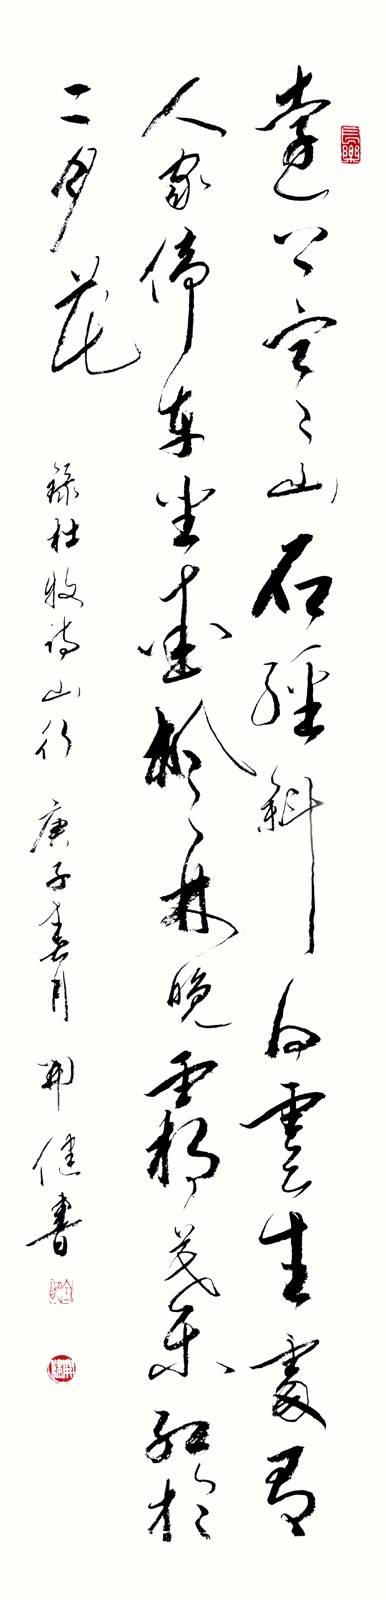 遠上寒山石經斜白雲生處有
人家停車坐愛楓林晚霜葉紅於
二月花
録杜牧詩山行 庚子春月 健書